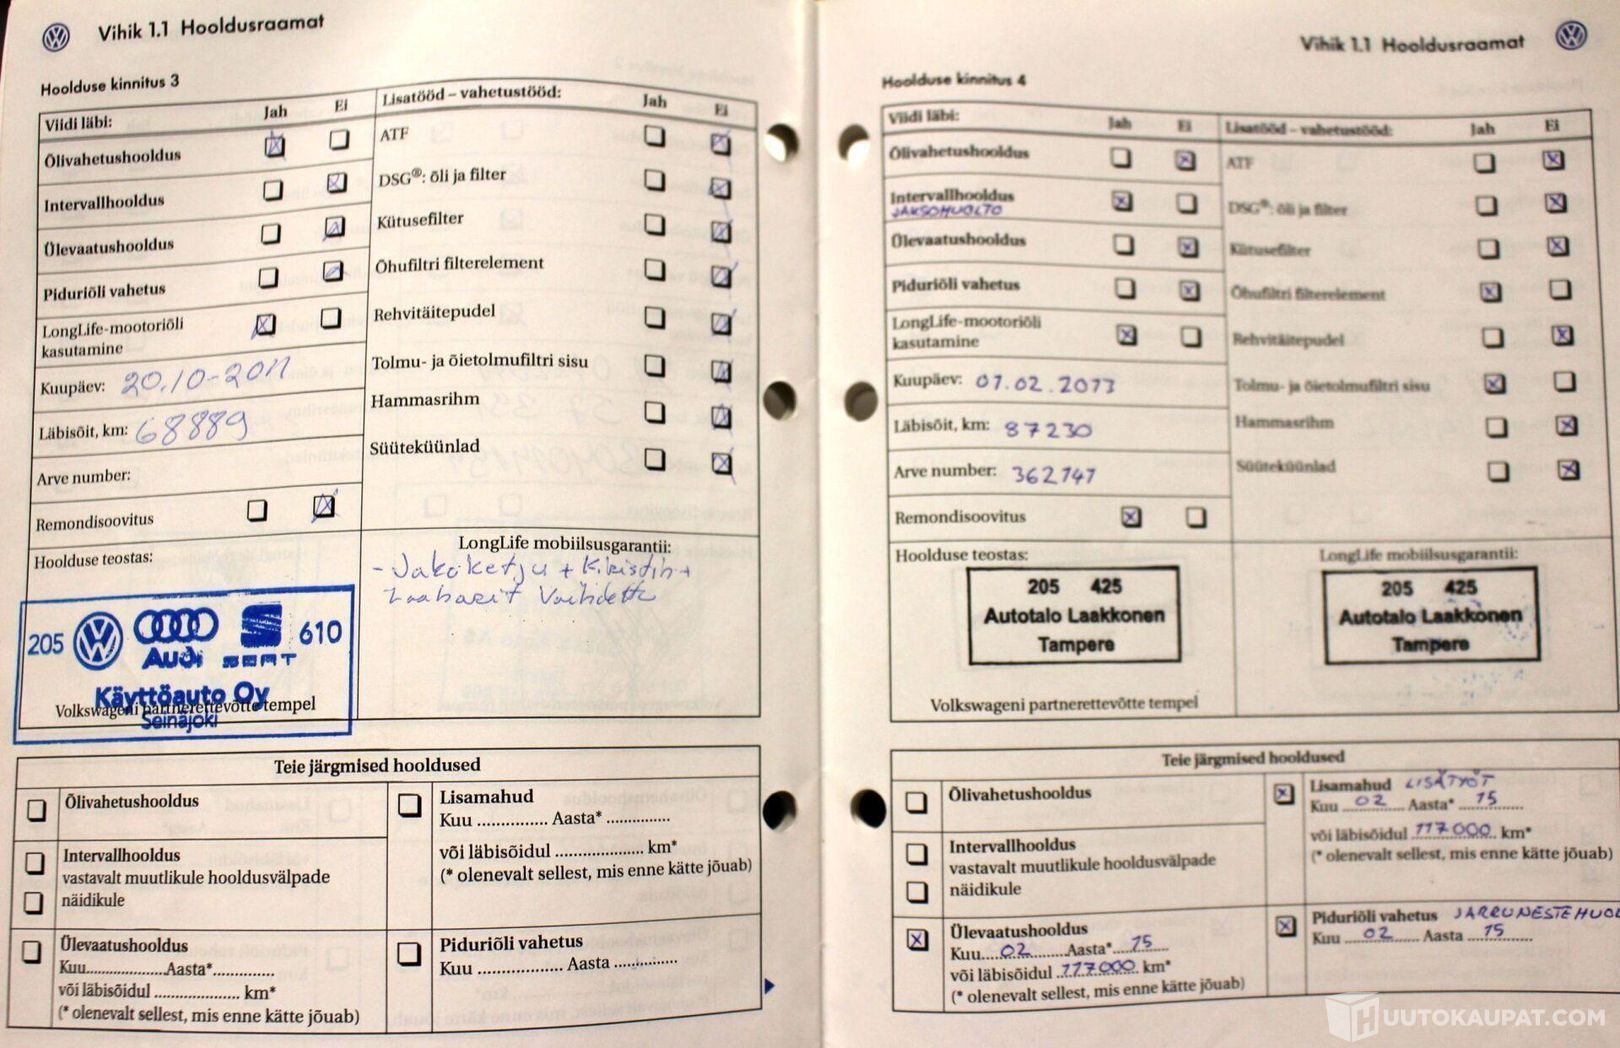 Vihik 1.1 Hooldusraamat
Hoolduse kinnitus 3
Viidi läbi: Jah Ei
Õlivahetushooldus
Intervallhooldus
Ülevaatushooldus
Piduriõli vahetus
LongLife-mootoriõli
kasutamine
Kuupäev: 20.10-2011
Läbisõit, km: 68889
Arve number:
Remondisoovitus
Hoolduse teostas:
205 610
Audi SEAT
Käyttöauto Oy
Seinäjoki
Volkswageni partnerettevõtte tempel
Lisatööd – vahetustööd: Jah Ei
ATF
DSG®: õli ja filter
Kütusefilter
Õhufiltri filterelement
Rehvitäitepudel
Tolmu- ja õietolmufiltri sisu
Hammasrihm
Süüteküünlad
LongLife mobiilsusgarantii:
- Jakoketju + Kiristin +
Vaihdettu
Teie järgmised hooldused
Õlivahetushooldus
Intervallhooldus
vastavalt muutlikule hooldusvälpade
näidikule
Ülevaatushooldus
Kuu..................Aasta*.............
või läbisõidul .................... km*
(* olenevalt sellest, mis enne kätte jõuab)
Lisamahud
Kuu ............... Aasta* ...............
või läbisõidul ..................... km*
(* olenevalt sellest, mis enne kätte jõuab)
Piduriõli vahetus
Kuu .................. Aasta ...............
Vihik 1.1 Hooldusraamat
Hoolduse kinnitus 4
Viidi läbi: Jah Ei
Õlivahetushooldus
Intervallhooldus
JAKSOHUOLTO
Ülevaatushooldus
Piduriõli vahetus
LongLife-mootoriõli
kasutamine
Kuupäev: 01.02.2013
Läbisõit, km: 87230
Arve number: 362141
Remondisoovitus
Hoolduse teostas:
205 425
Autotalo Laakkonen
Tampere
Volkswageni partnerettevõtte tempel
Lisatööd – vahetustööd: Jah Ei
ATF
DSG®: õli ja filter
Kütusefilter
Õhufiltri filterelement
Rehvitäitepudel
Tolmu- ja õietolmufiltri sisu
Hammasrihm
Süüteküünlad
LongLife mobiilsusgarantii:
205 425
Autotalo Laakkonen
Tampere
Teie järgmised hooldused
Õlivahetushooldus
Intervallhooldus
vastavalt muutlikule hooldusvälpade
näidikule
Ülevaatushooldus
Kuu....02......Aasta*...15....
või läbisõidul ..117000.. km*
(* olenevalt sellest, mis enne kätte jõuab)
Lisamahud LISÄTYÖT
Kuu ...02..... Aasta* ...15......
või läbisõidul 117000.. km*
(* olenevalt sellest, mis enne kätte jõuab)
Piduriõli vahetus JARRUNESTEHUOL
Kuu ....02...... Aasta ...15......
HUUTOKAUPAT.COM